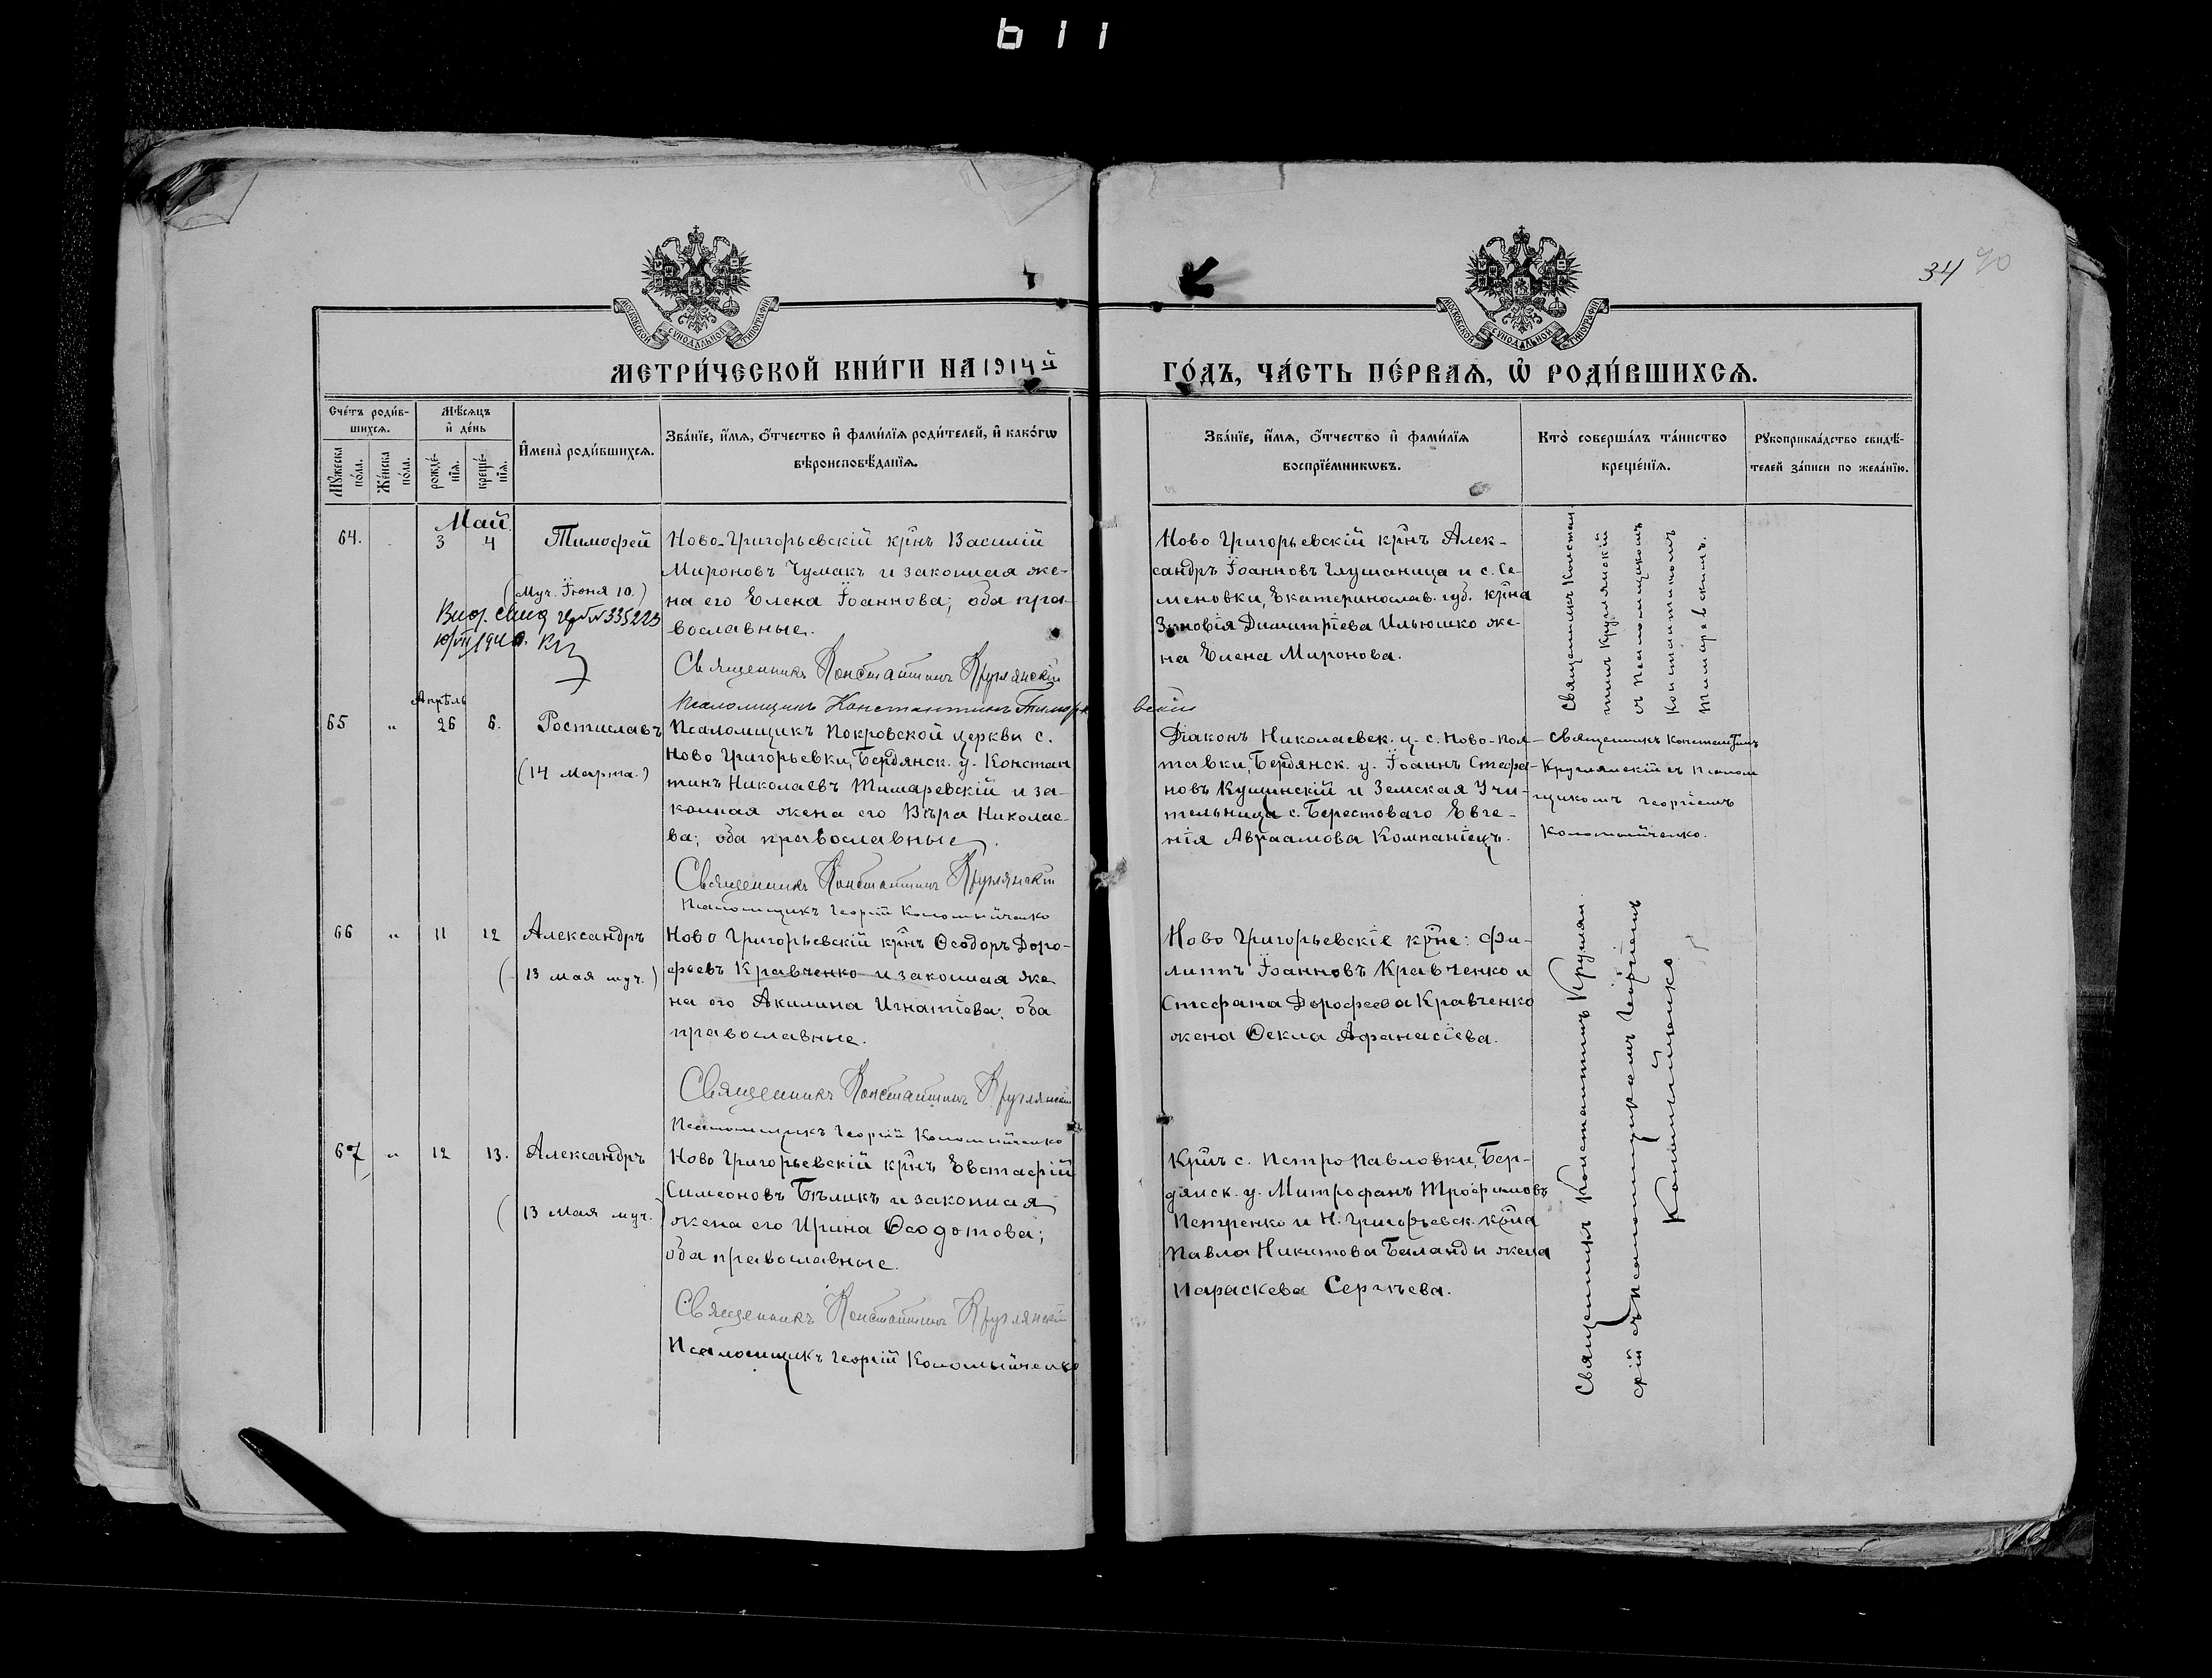 611
34 70
МОСКОВСКОЙ СѴНОДАЛЬНОЙ ТИПОГРАФІИ
МОСКОВСКОЙ СѴНОДАЛЬНОЙ ТИПОГРАФІИ
МЕТРИ́ЧЕСКОЙ КНИ́ГИ НА 1914й
ГО́ДЪ, ЧА́СТЬ ПЕ́РВАѦ, Ѡ҆ РОДИ́ВШИХСѦ.
Сче́тъ роди́в-
шихсѧ.
Мꙋ́жеска
по́ла.
Же́нска
по́ла.
Мѣ́сѧцъ
и҆ де́нь
рожде́-
нїѧ.
креще́-
нїѧ.
И҆мена̀ роди́вшихсѧ.
Зва́нїе, и҆́мѧ, ѻ҆́тчество и҆ фами́лїѧ роди́телей, и҆ како́гѡ
вѣроисповѣ́данїѧ.
Зва́нїе, и҆́мѧ, ѻ҆́тчество и҆ фами́лїѧ
воспрїе́мникѡвъ.
Кто̀ соверша́лъ та́инство
креще́нїѧ.
Рꙋкоприкла́дство свидѣ́-
телей за́писи по жела́нїю.
Май.
64.
3
4
Тимофей
(Муч. Іюня 10.)
1940.
Ново-Григорьевскій крнъ Василій
Мироновъ Чумакъ и законная же-
на его Елена Іоаннова; оба пра-
вославные.
Священникъ Константинъ Круглянскій
Псаломщикъ Константинъ Тимаревскій
Ново Григорьевскій крнъ Алек-
сандръ Іоанновъ Глушаница и с. Се-
меновки, Екатеринослав. губ. крна
Зиновія Димитріева Ильюшко же-
на Елена Миронова.
Священникъ Констан
тинъ Круглянскій
съ псаломщикомъ
Константиномъ
Тимаревскимъ.
Апрѣль
65
"
26
6.
Ростиславъ
(14 Марта.)
Псаломщикъ Покровской церкви с.
Ново Григорьевки, Бердянск. у. Констан
тинъ Николаевъ Тимаревскій и за-
конная жена его Вѣра Николае-
ва; оба православные.
Священникъ Константинъ Круглянскій
Псаломщикъ Георгій Коломыйченко
Діаконъ Николаевск. ц. с. Ново-Пол-
тавки, Бердянск. у. Іоаннъ Стефа-
новъ Кушинскій и Земская Учи-
тельница с. Берестоваго Евге-
нія Авраамова Компаніецъ.
Священникъ Константинъ
Круглянскій съ псалом
щикомъ Георгіемъ
Коломыйченко.
66
"
11
12
Александръ
(13 мая муч.)
Ново Григорьевскій крнъ Ѳеодоръ Доро-
феевъ Кравченко и законная же
на его Акилина Игнатіева; оба
православные.
Священникъ Константинъ Круглянскій
Псаломщикъ Георгій Коломыйченко
Ново Григорьевскіе крне: Фи-
липпъ Іоанновъ Кравченко и
Стефана Дорофеева Кравченко
жена Ѳекла Афанасіева.
Священникъ Константинъ Круглян
скій съ псаломщикомъ Георгіемъ
Коломыйченко
67
"
12
13.
Александръ
(13 Мая муч.)
Ново Григорьевскій крнъ Евстафій
Симеоновъ Бѣликъ и законная
жена его Ирина Ѳеодотова;
оба православные.
Священникъ Константинъ Круглянскій
Псаломщикъ Георгій Коломыйченко
Крнъ с. Петропавловки, Бер-
дянск. у. Митрофанъ Трофимовъ
Петренко и Н. Григорьевск. крна
Павла Никитова Баланды жена
Параскева Сергѣева.